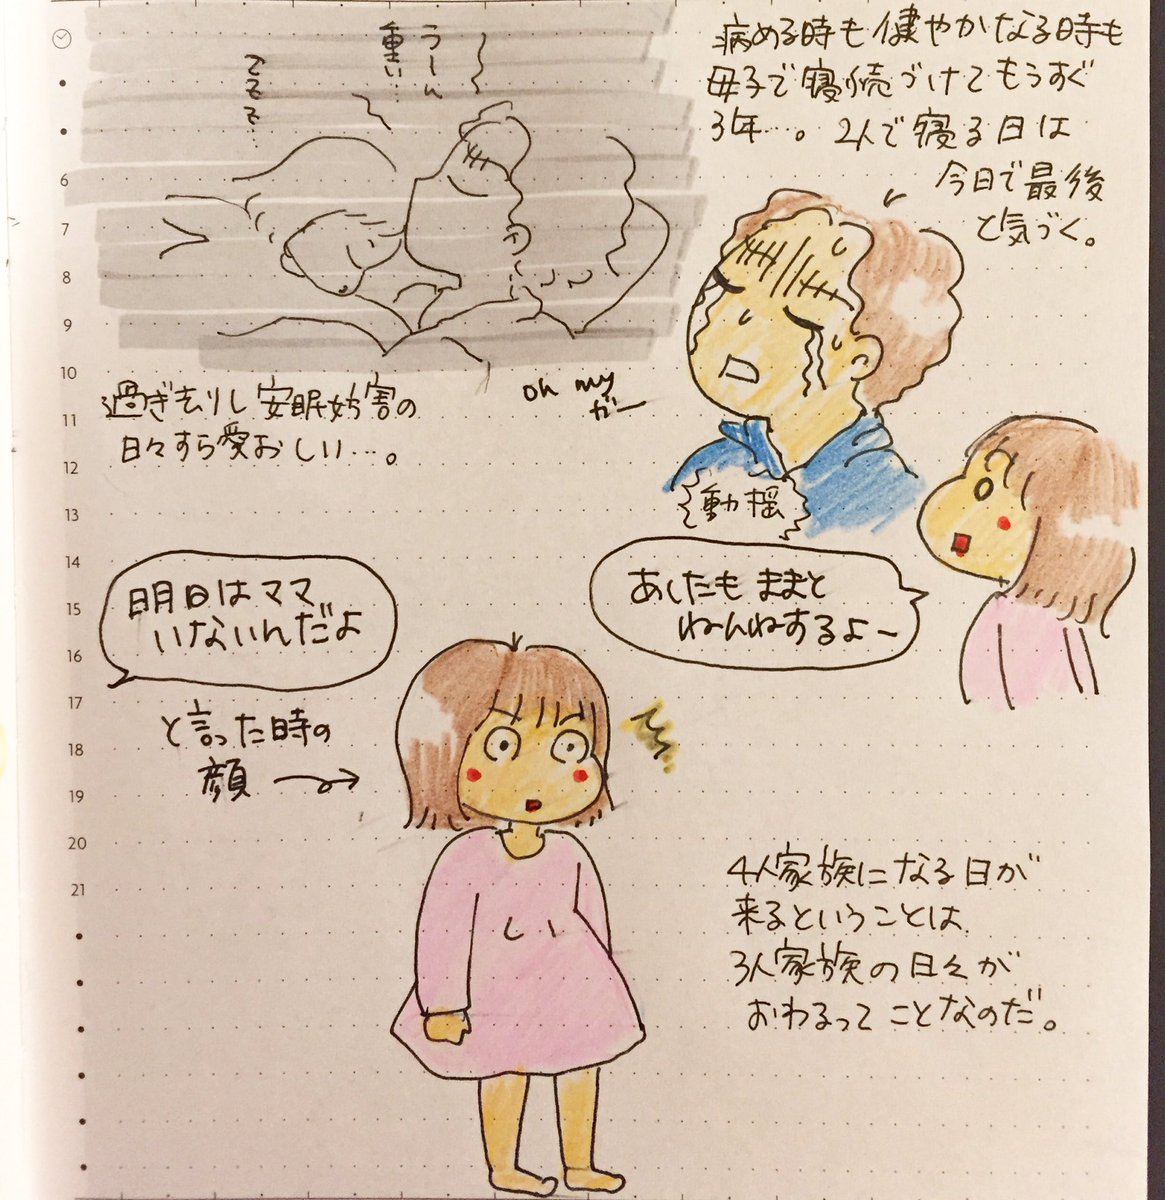 病める時も健やかなる時も
母子で寝続づけてもうすぐ
3年…。2人で寝る日は
今日で最後
と気づく。
うーん
重い…
過ぎ去りし安眠妨害の
日々すら愛おしい…。
oh my
がー
動揺
あしたも ままと
ねんねするよ〜
明日はママ
いないんだよ
と言った時の
顔
4人家族になる日が
来るということは
3人家族の日々が
おわるってことなのだ。
6
7
8
9
10
11
12
13
14
15
16
17
18
19
20
21